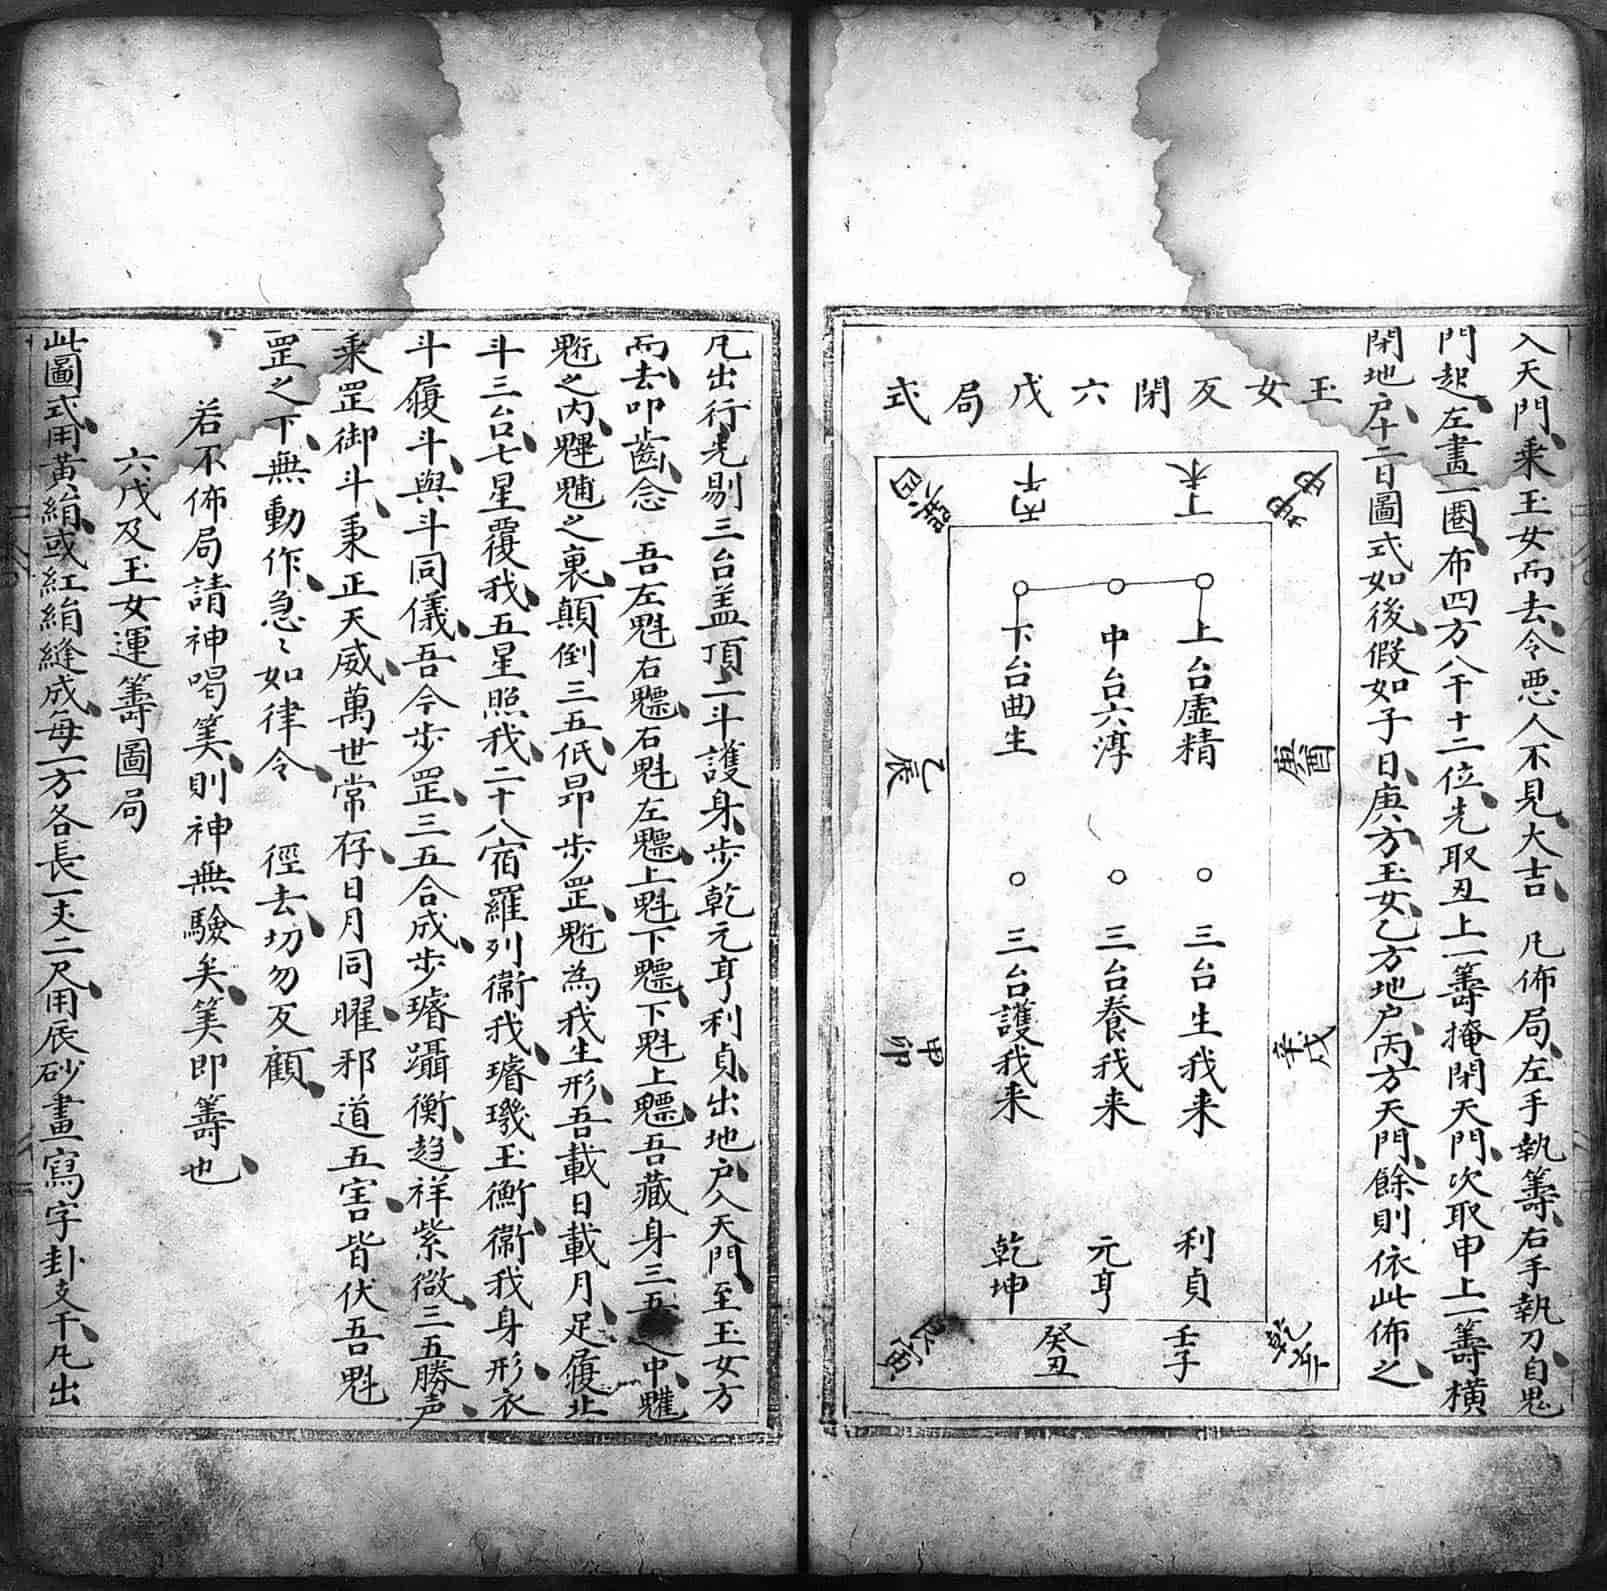 入天門乗玉女而去令悪人不見大吉 凡佈局左手執籌右手執刀自鬼
門起左畫一圈布四方八干十二位先取丑上一籌掩閉天門次取申上一籌横
閉地户十二日圖式如後假如子日庚方玉女乙方地户丙方天門餘則依此佈之
玉女反閉六戊局式
坤申
丁未
丙午
巽巳
庚酉
乙辰
辛戌
甲卯
乾亥
壬子
癸丑
艮寅
上台虚精
中台六淳
下台曲生
三台生我来
三台養我来
三台護我来
利貞
元亨
乾坤
凡出行先剔三台盖頂二斗護身歩乾元亨利貞出地户入天門至玉女方
而去叩齒念 吾左魁右魒右魁左魒上魁下魒下魁上魒吾藏身三五之中魓
魁之内魓魒之裏顛倒三五低昂歩罡魁為我生形吾載日載月足履北
斗三台七星覆我五星照我二十八宿羅列衛我璿璣玉衡衛我身形衣
斗履斗與斗同儀吾今歩罡三五合成歩璿躡衡趋祥紫微三五勝声
乘罡御斗秉正天威萬世常存日月同曜邪道五害皆伏吾魁
罡之下無動作急〻如律令 徑去切勿反顧
若不佈局請神喝筭則神無驗矣筭即籌也
六戊及玉女運籌圖局
此圖式用黄絹或紅絹縫成每一方各長一丈二尺用辰砂畫寫字卦支干凡出